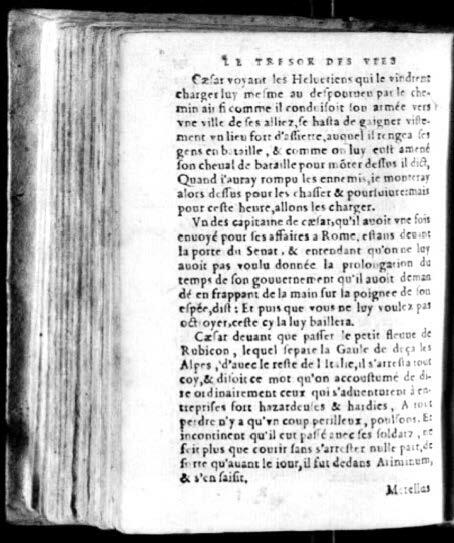 LE TRESOR DES VIES
Cæsar voyant les Heluetiens qui le vindrent
charger luy mesme au despourueu par le che-
min ainsi comme il conduisoit son armée vers
vne ville de ses alliez, se hasta de gaigner viste-
ment vn lieu fort d'assierte, auquel il rengea ses
gens en bataille, & comme on luy eust amené
son cheual de bataille pour môter dessus il dict,
Quand i'auray rompu les ennemis, ie monteray
alors dessus pour les chasser & poursuiure: mais
pour ceste heure, allons les charger.
Vn des capitaine de cæsar, qu'il auoit vne fois
enuoyé pour ses affaires a Rome, estans deuant
la porte du Senat, & entendant qu'on ne luy
auoit pas voulu donnée la prolongation du
temps de son gouuernement qu'il auoit deman
dé en frappant de la main sur la poignee de son
espée, dist: Et puis que vous ne luy voulez pas
octroyer, ceste cy la luy baillera.
Cæsar deuant que passer le petit fleuue de
Rubicon, lequel separe la Gaule de deça les
Alpes, d'auec le reste de l'Italie, il s'arresta tout
coy, & disoit ce mot qu'on accoustumé de di-
re ordinairement ceux qui s'aduenturent à en-
treprises fort hazardeuses & hardies, A tout
perdre n'y a qu'vn coup perilleux, poulsons. Et
incontinent qu'il eut passé auec ses soldatz, ne
feit plus que courir sans s'arrester nulle part, de
sorte qu'auant le iour, il fut dedans Ariminum,
& s'en saisit.
Metellus